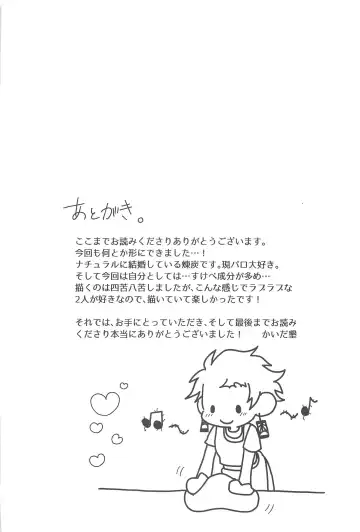 あとがき。
ここまでお読みくださりありがとうございます。
今回も何とか形にできました…！
ナチュラルに結婚している煉炭です。現パロ大好き。
そして今回は自分としては…すけべ成分が多め…
描くのは四苦八苦しましたが、こんな感じでラブラブな
2人が好きなので、描いていて楽しかったです！
それでは、お手にとっていただき、そして最後までお読み
くださり本当にありがとうございました！　かいだ懇